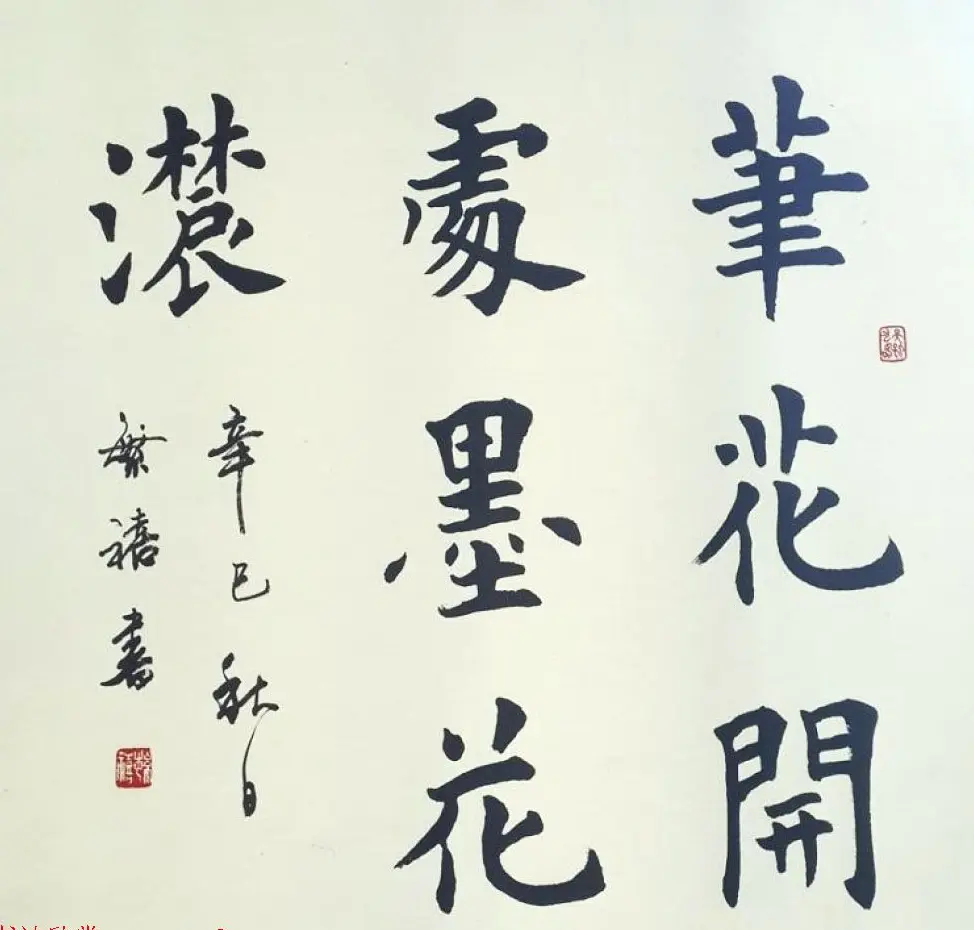 筆花開
處墨花
濃
辛巳秋日
繁禧書